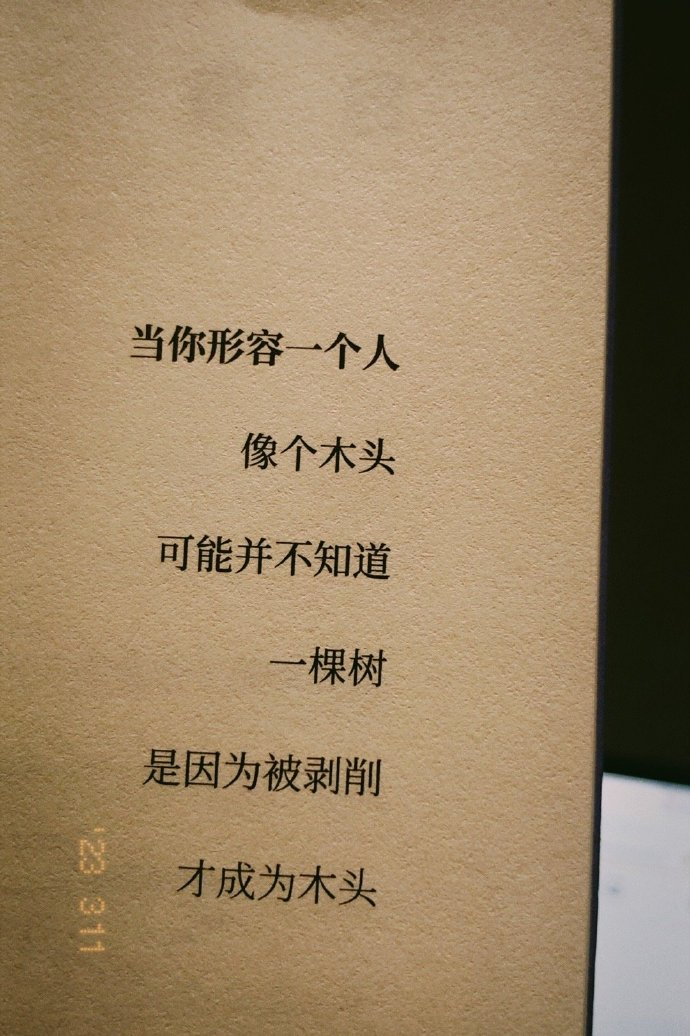 当你形容一个人
像个木头
可能并不知道
一棵树
是因为被剥削
才成为木头
'23 3 11